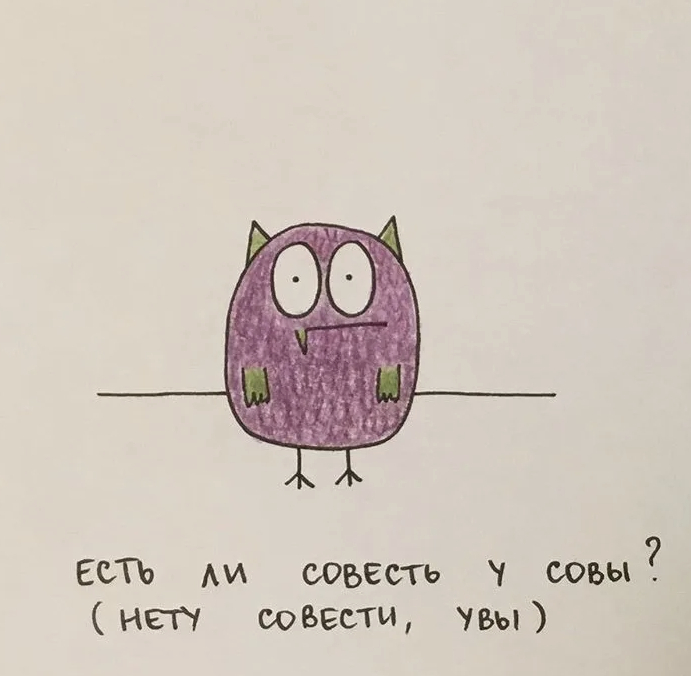 ЕСТЬ ЛИ СОВЕСТЬ У СОВЫ?
(НЕТУ СОВЕСТИ, УВЫ)